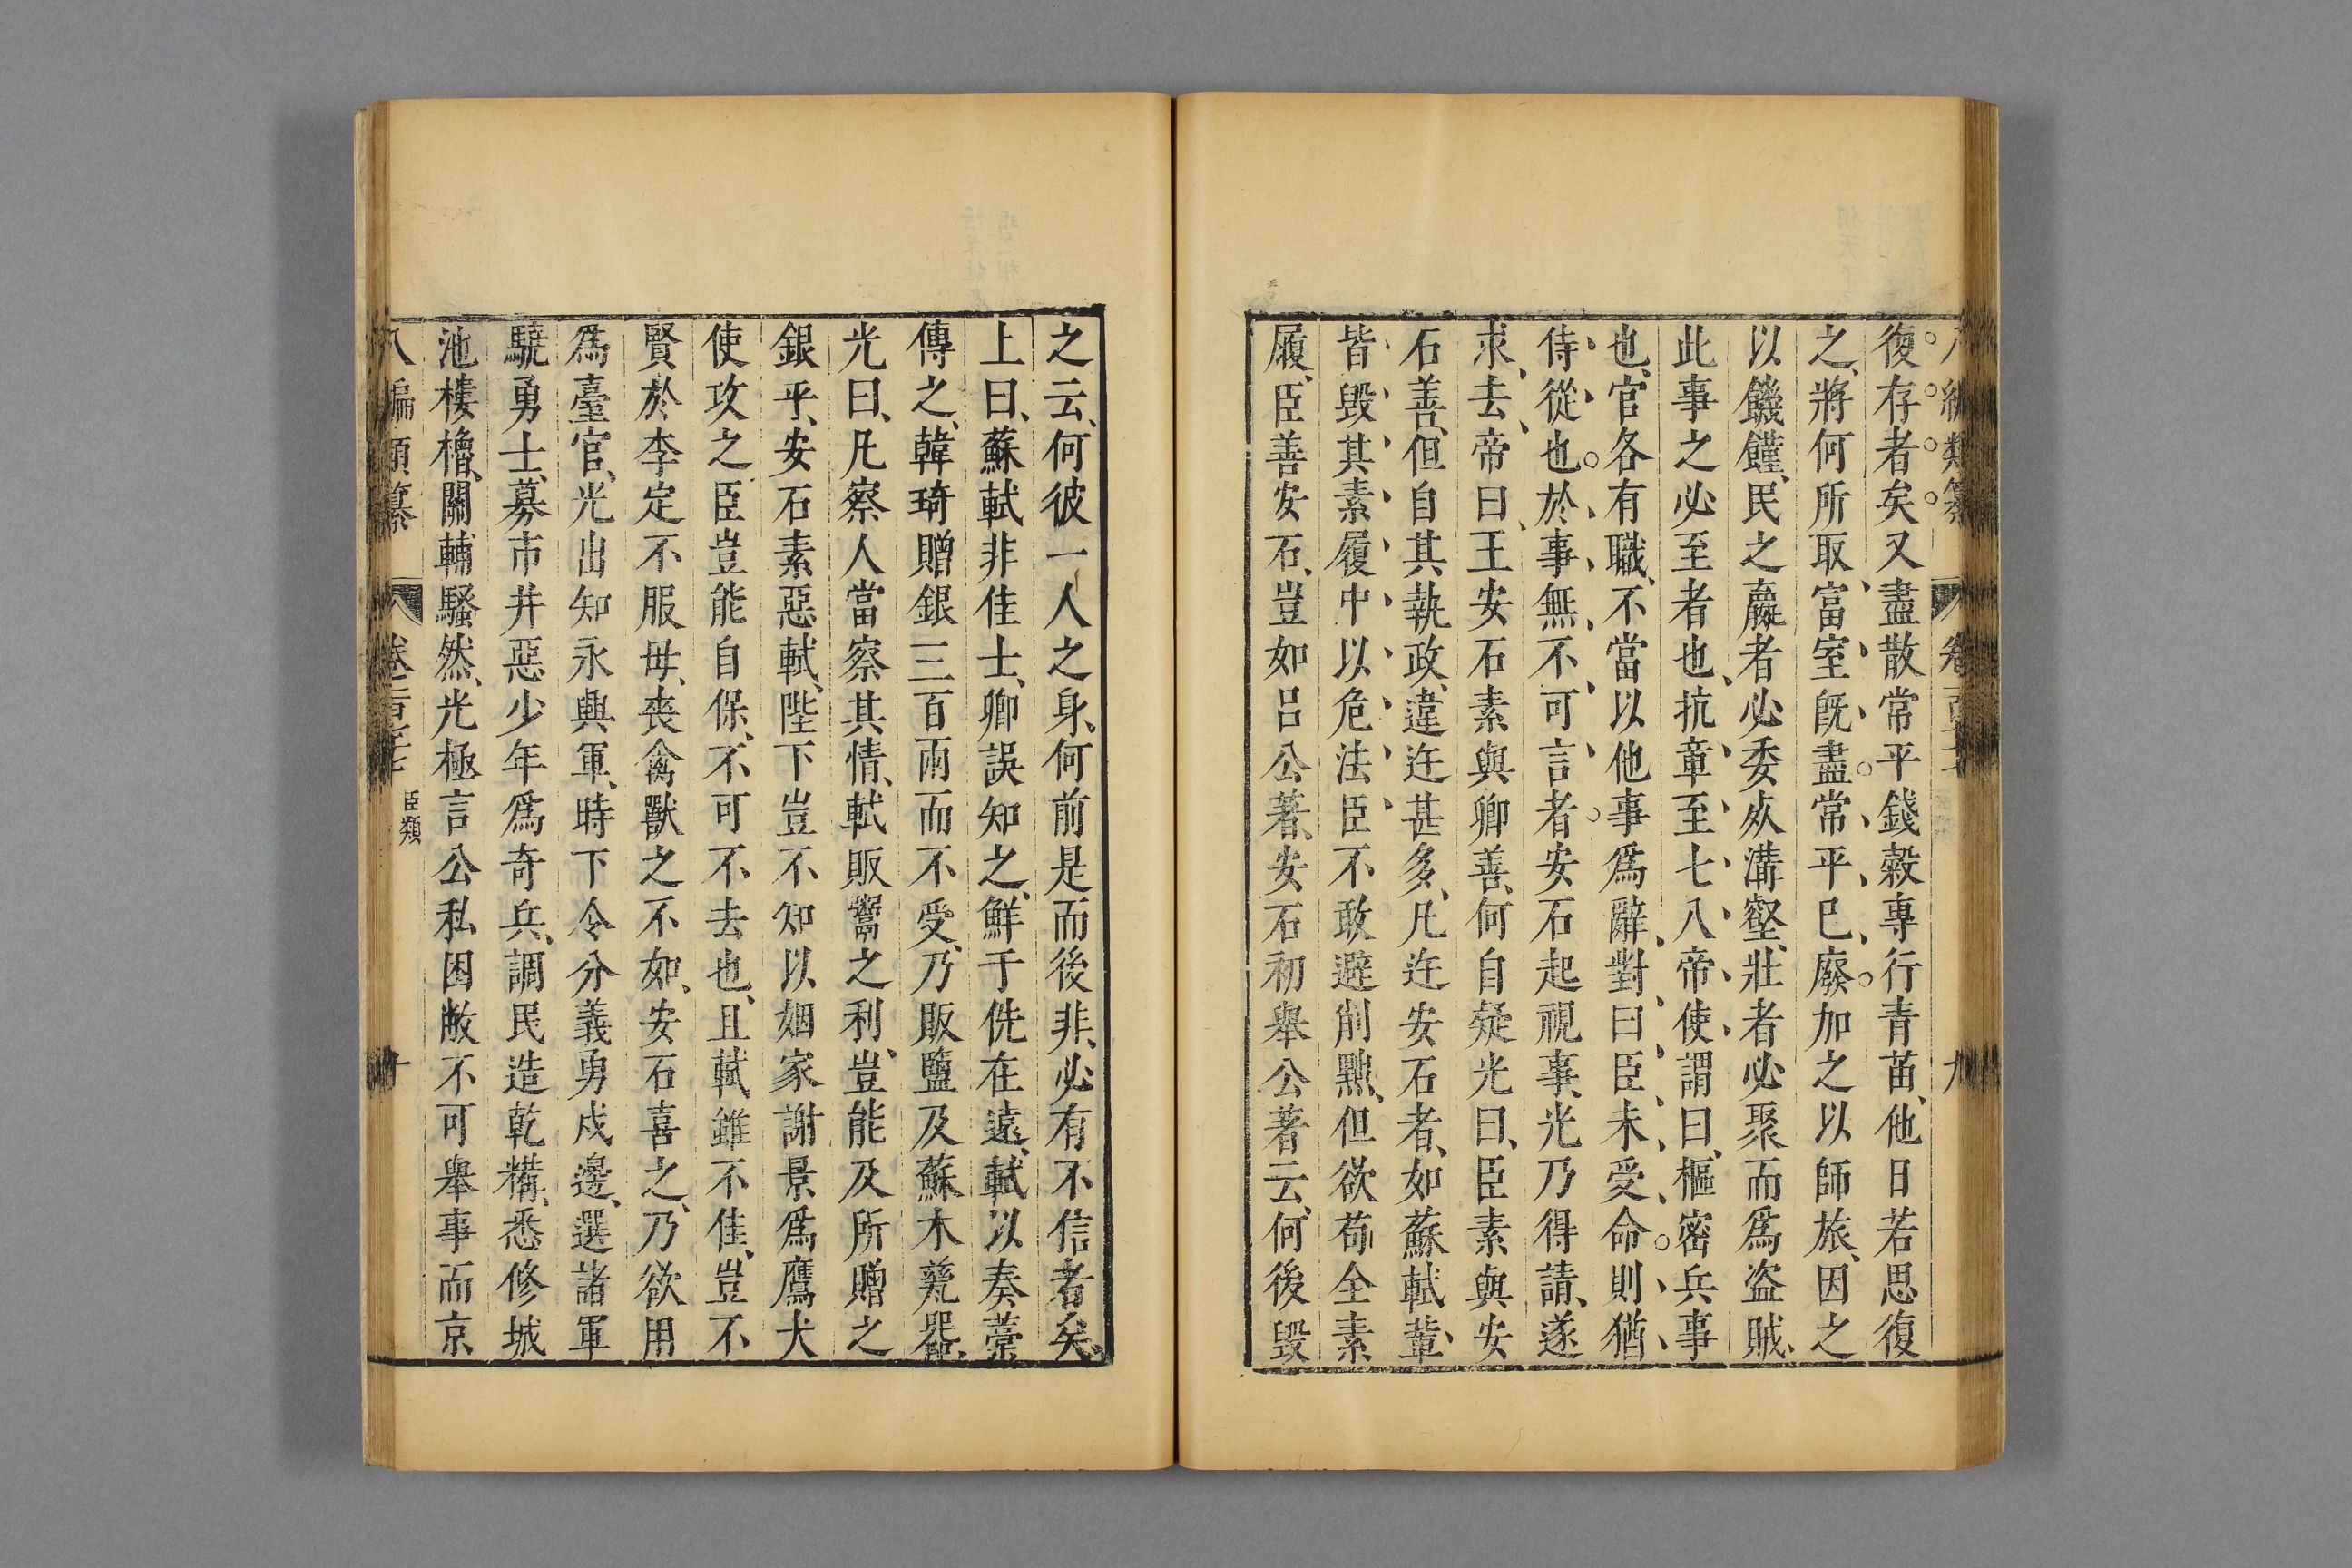 復存者矣又盡散常平錢穀專行青苗他日若思復
之將何所取富室旣盡常平已廢加之以師旅因之
以饑饉民之羸者必委死溝壑壯者必聚而爲盗賊
此事之必至者也抗章至七八帝使謂曰樞密兵事
也官各有職不當以他事爲辭對曰臣未受命則猶
侍從也於事無不可言者安石起視事光乃得請遂
求去帝曰王安石素與卿善何自疑光曰臣素與安
石善但自其執政違迕甚多凡迕安石者如蘇軾輩
皆毀其素履中以危法臣不敢避削黜但欲苟全素
履臣善安石豈如呂公著安石初舉公著云何後毀
之云何彼一人之身何前是而後非必有不信者矣
上曰蘇軾非佳士卿誤知之鮮于侁在遠軾以奏藁
傳之韓琦贈銀三百兩而不受乃販鹽及蘇木甆器
光曰凡察人當察其情軾販鬻之利豈能及所贈之
銀乎安石素惡軾陛下豈不知以姻家謝景爲鷹犬
使攻之臣豈能自保不可不去也且軾雖不佳豈不
賢於李定不服母喪禽獸之不如安石喜之乃欲用
爲臺官光出知永興軍時下令分義勇戍邊選諸軍
驍勇士募市井惡少年爲奇兵調民造乾糒悉修城
池樓櫓關輔騷然光極言公私困敝不可舉事而京
八編類纂 卷一百七十 臣類 十